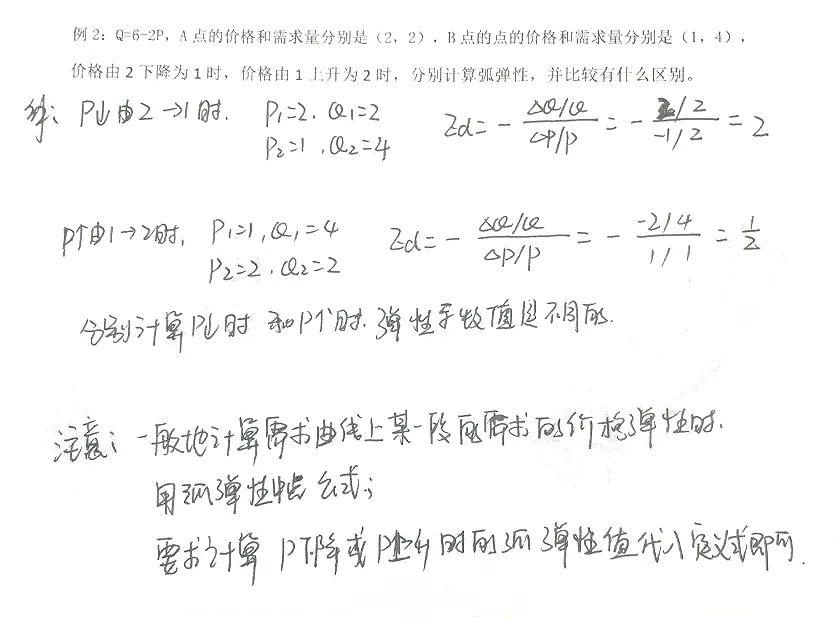 例2：Q=6-2P，A点的价格和需求量分别是（2，2），B点的点的价格和需求量分别是（1，4），
价格由2下降为1时，价格由1上升为2时，分别计算弧弹性，并比较有什么区别。
解：P↓由2→1时. P₁=2. Q₁=2 Ed = - (ΔQ/Q)/(ΔP/P) = - (2/2)/(-1/2) = 2
P₂=1，Q₂=4
P↑由1→2时， P₁=1，Q₁=4 Ed = - (ΔQ/Q)/(ΔP/P) = - (-2/4)/(1/1) = 1/2
P₂=2．Q₂=2
分别计算P↓时和P个时.弹性系数值是不同的.
注意：一般地计算需求曲线上某一段的需求的价格弹性时.
用弧弹性中点公式；
要求计算P下降或P上升时的弧弹性值代入定义式即可.